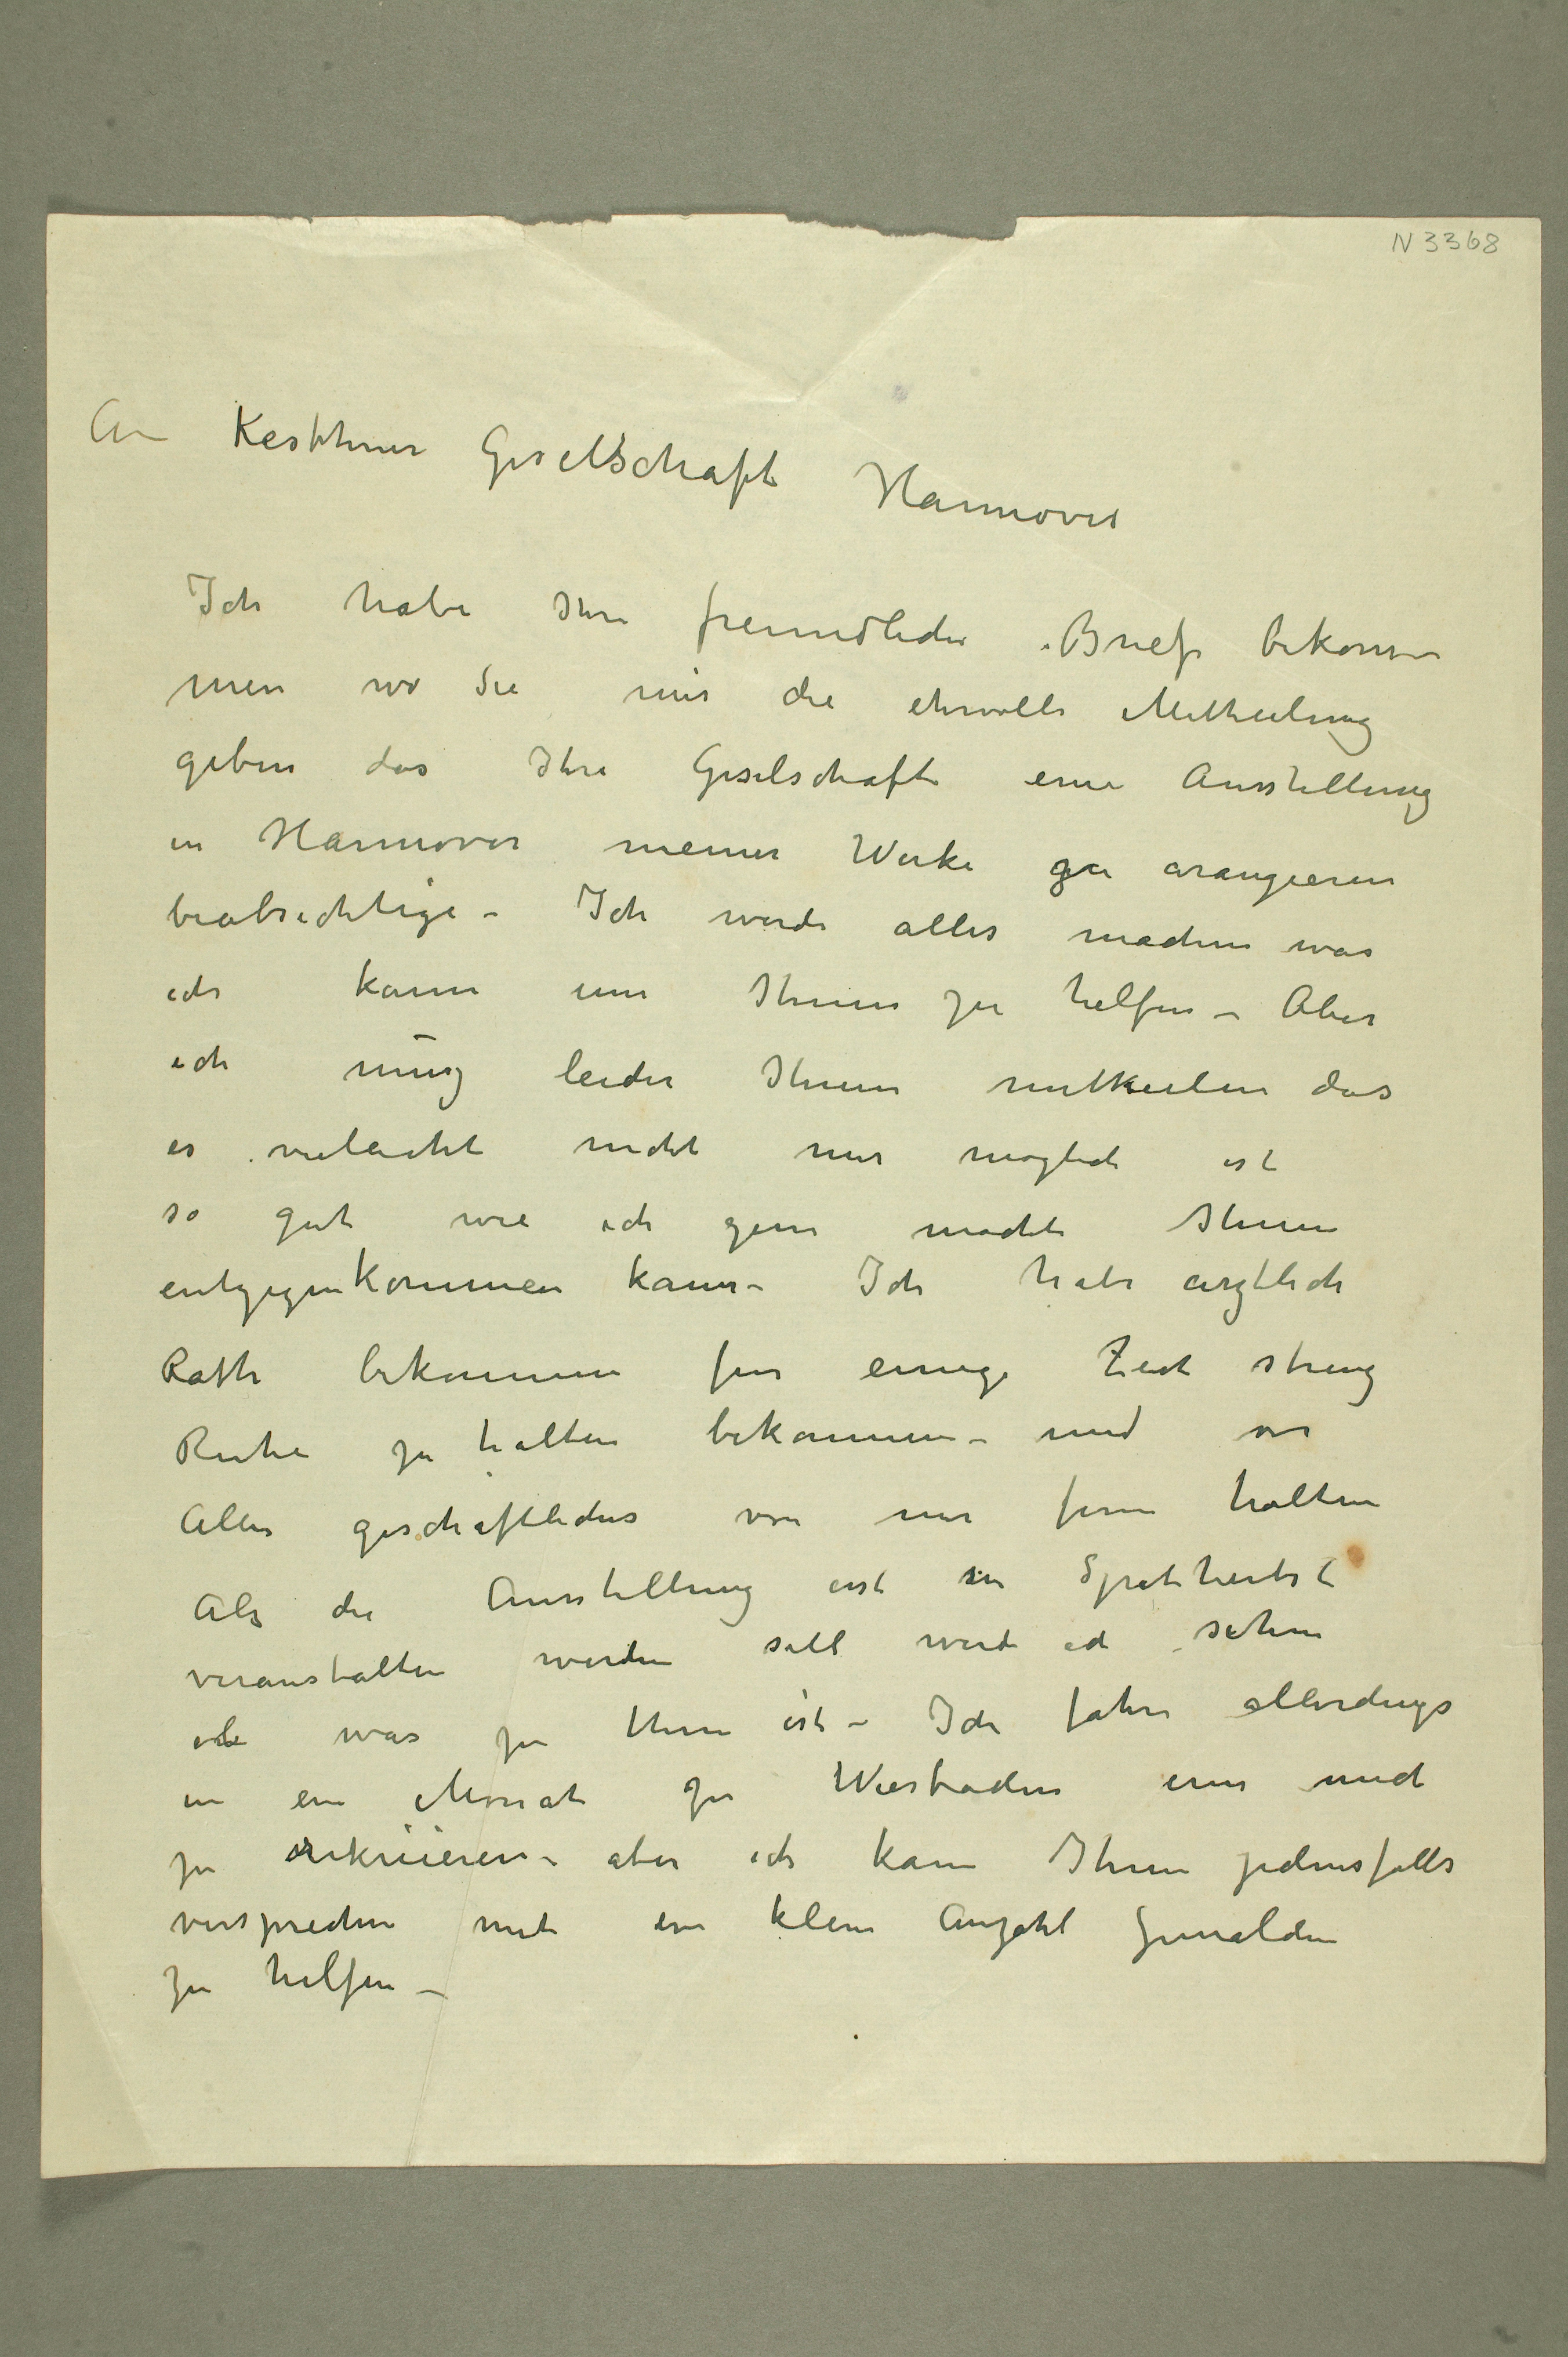 N 3368
An Kesthner Gesellschaft Hannover
Ich habe Ihre freundliche Brief bekom-
men wo Sie mir die ehrvolle Mittheilung
geben das Ihre Geselschaft eine Ausstellung
in Hannover meiner Werke zu arangieren
beabsichtige – Ich werde alles machen was
ich kann um Ihnen zu helfen – Aber
ich muß leider Ihnen mittheilen das
es vieleicht nicht mir möglich ist
so gut wie ich gern möchte Ihnen
entgegenkommen kann – Ich habe arztlich
Rath bekommen für einige Zeit streng
Ruhe zu halten bekommen – und vor
Alles geschäftliches von mir fern halten
Als die Ausstellung erst in Spätherbst
veranstalten werden soll werde ich sehen
was zu thun ist – Ich fahre allerdings
in ein Monat zu Wiesbaden um mich
zu rekriieren – aber ich kann Ihnen jedensfalls
versprechen mit ein klein Anzahl Gemälden
zu helfen –